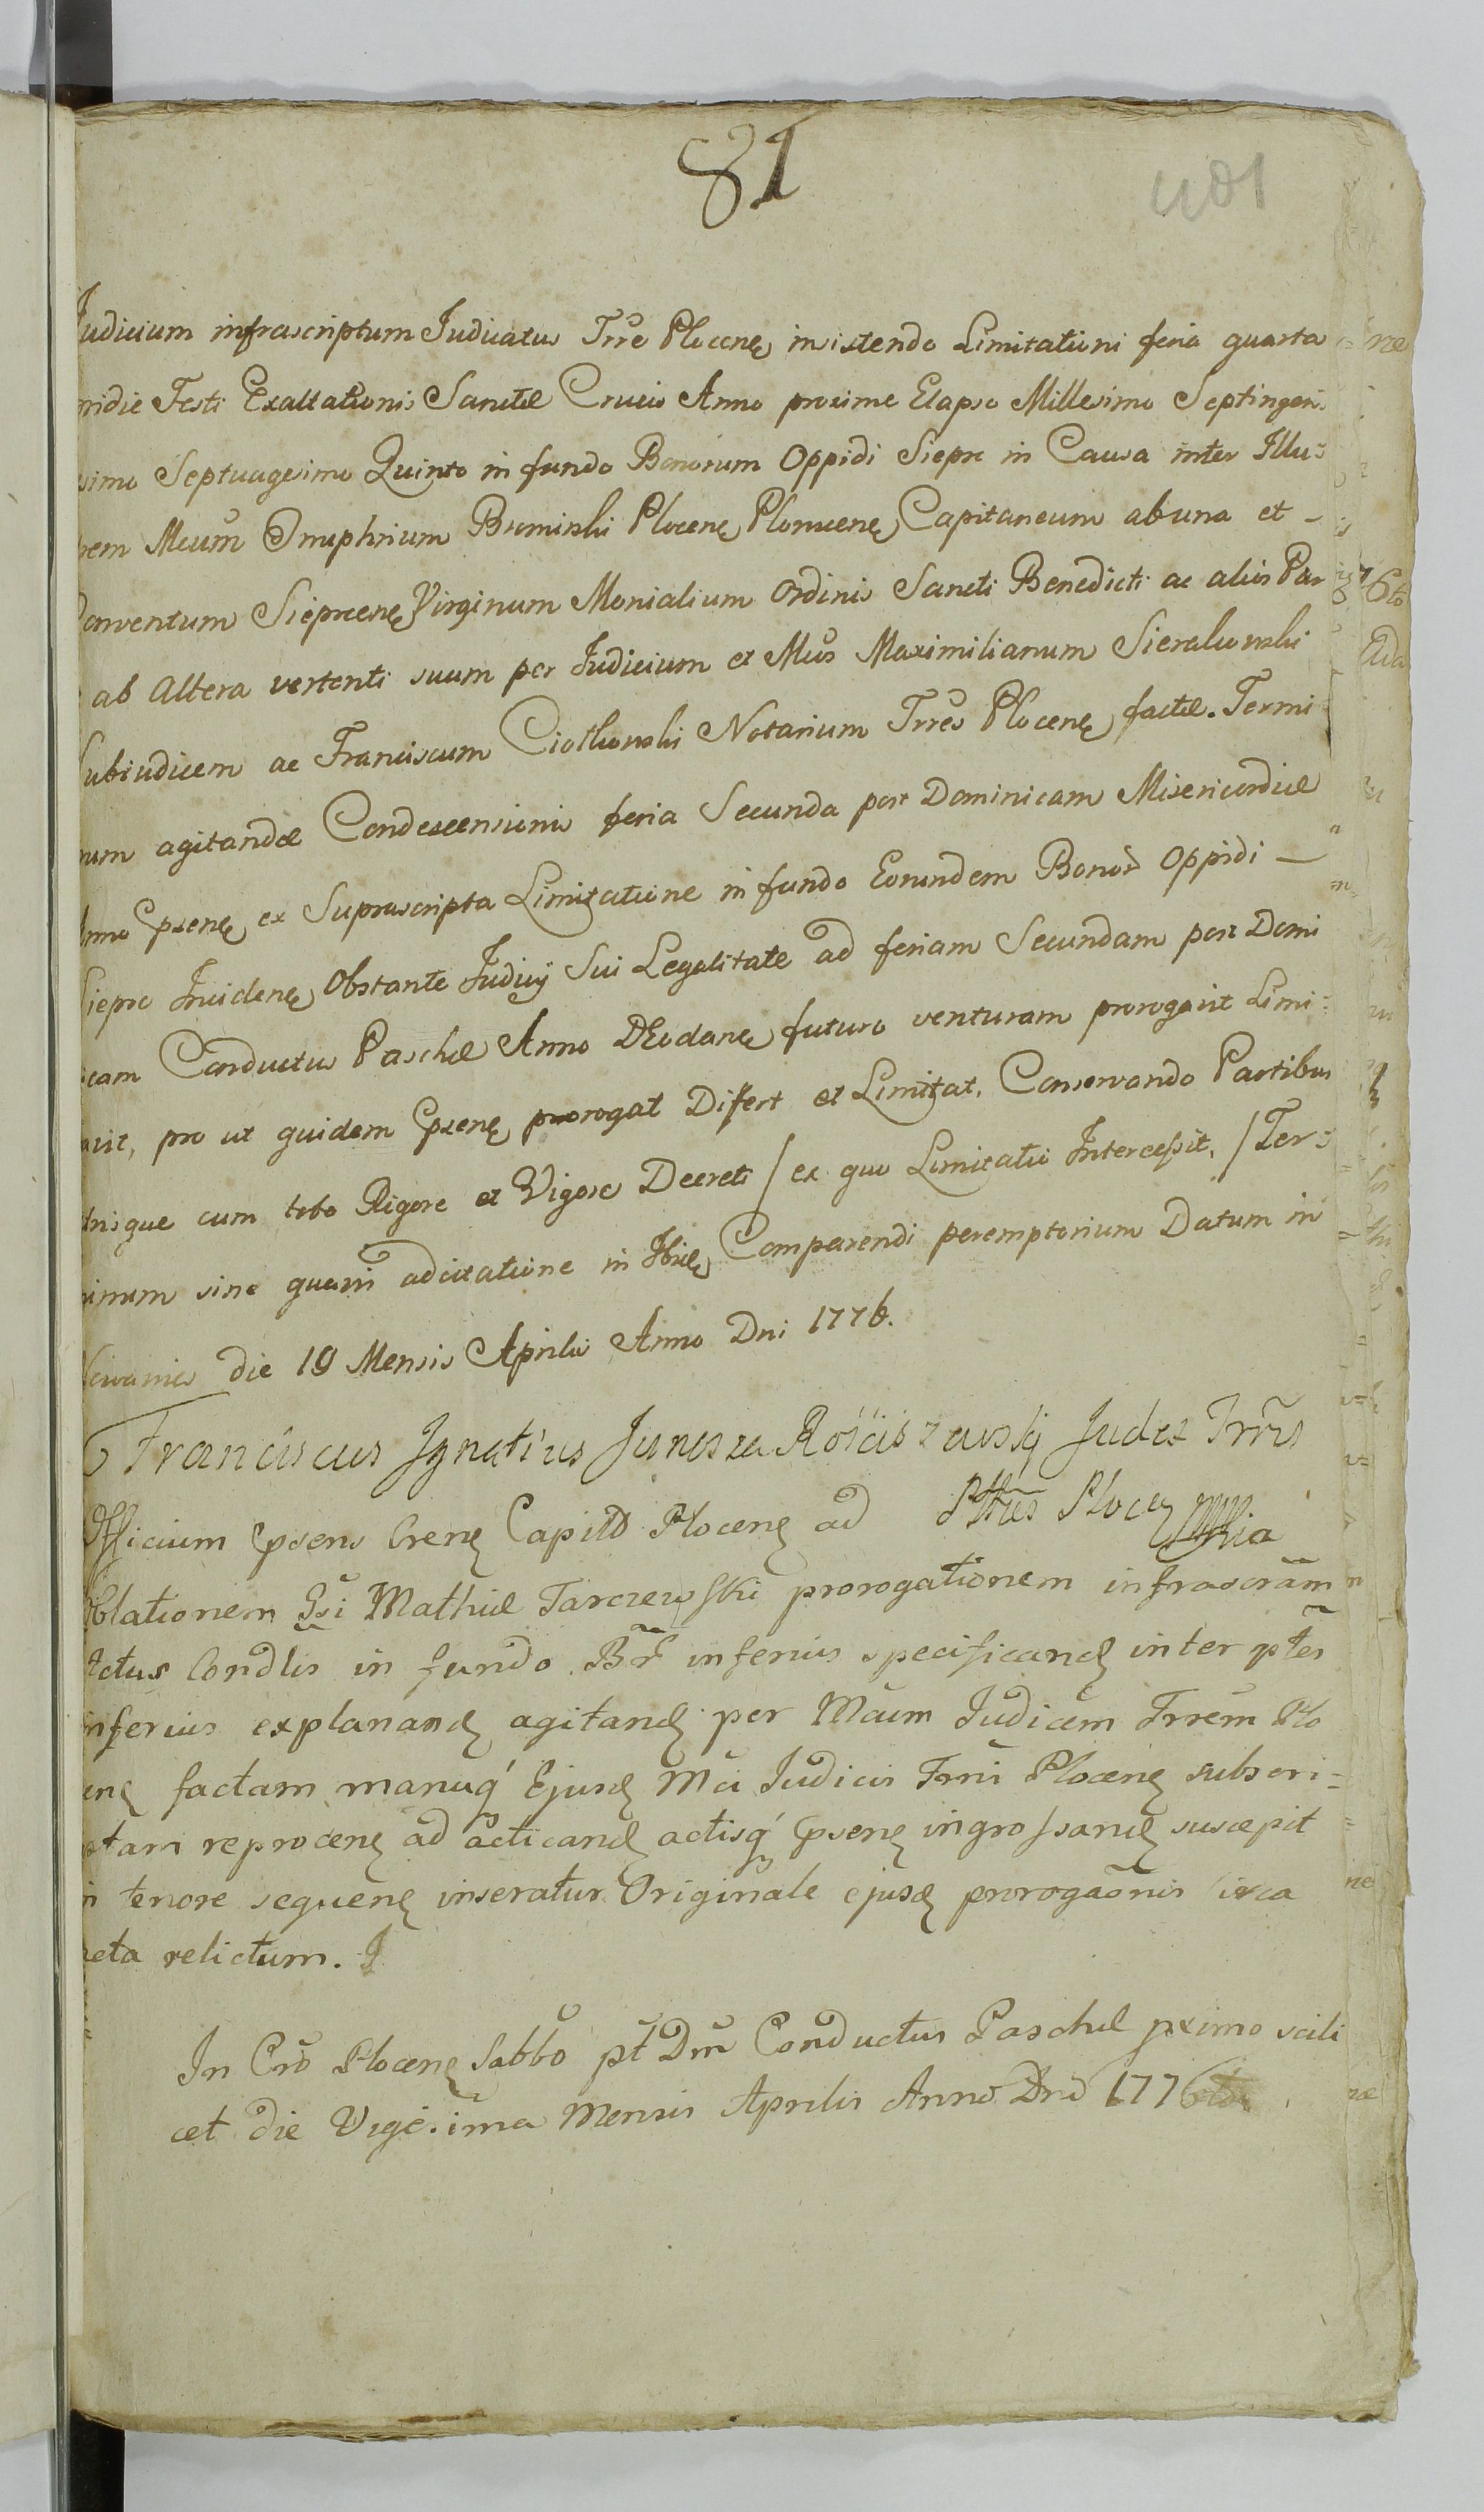 81
401
Judicium infrascriptum Judicatus Trre Plocen insistendo Limitationi feria quarta
pridie Festi Exaltationis Sanctæ Crucis Anno proxime Elapso Millesimo Septingen:
simo Septuagesimo Quinto in fundo Bonorum Oppidi Sieprc in Causa inter Illu:
rem Mcum Onuphrium Bromirski Plocen Plonscen Capitaneum ab una et -
Conventum Sieprcen Virginum Monialium Ordinis Sancti Benedicti ac aliis Par
ab Altera vertenti suum per Judicium et Mcos Maximilianum Sierakowski
Subjudicem ac Franciscum Ciołkowski Notarium Trres Plocen factæ. Termi
num agitandæ Condescensionis feria Secunda post Dominicam Misericordiæ
Anno Epsen ex Suprascripta Limitatione in fundo Eorundem Bonor Oppidi -
Sieprc Inciden Obstante Judicij Sui Legalitate ad feriam Secundam post Domi
cam Conductus Paschæ Anno DEodan futuro venturam prorogavit Limi:
avit, pro ut quidem Epsen prorogat Differt et Limitat, Conservando Partibus
trisque cum toto Rigore et Vigore Decreti / ex quo Limitatio Intercessit, / Ter:
minum sine quavis adcitatione in Comparendi peremptorium Datum in
die 19 Mensis Aprilis Anno Dni 1776.
Franciscus Ignatius Junosza Rościszewskj Judex Trris
Officium Epsens Cren Capitl Plocen ad Plocen
Oblationem Gsi Mathiæ Tarczewski prorogationem infrascram
Actus Condlis in fundo Br inferius specificand inter ptes
inferius explanand agitand per Mcum Judicem Trrem Plo
cen factam manuq Ejusd Mci Judicis Trris Plocen subscri=
ptam reprocen ad acticand actisq Epsen ingrossand suscepit
in tenore sequen inseratur Originale ejusd prorogaonis circa
acta relictum. J
In Cro Plocen Sabbo pt Dm Conductus Paschæ primo scili
cet die Vigesima Mensis Aprilis Anno Dnd 1776to